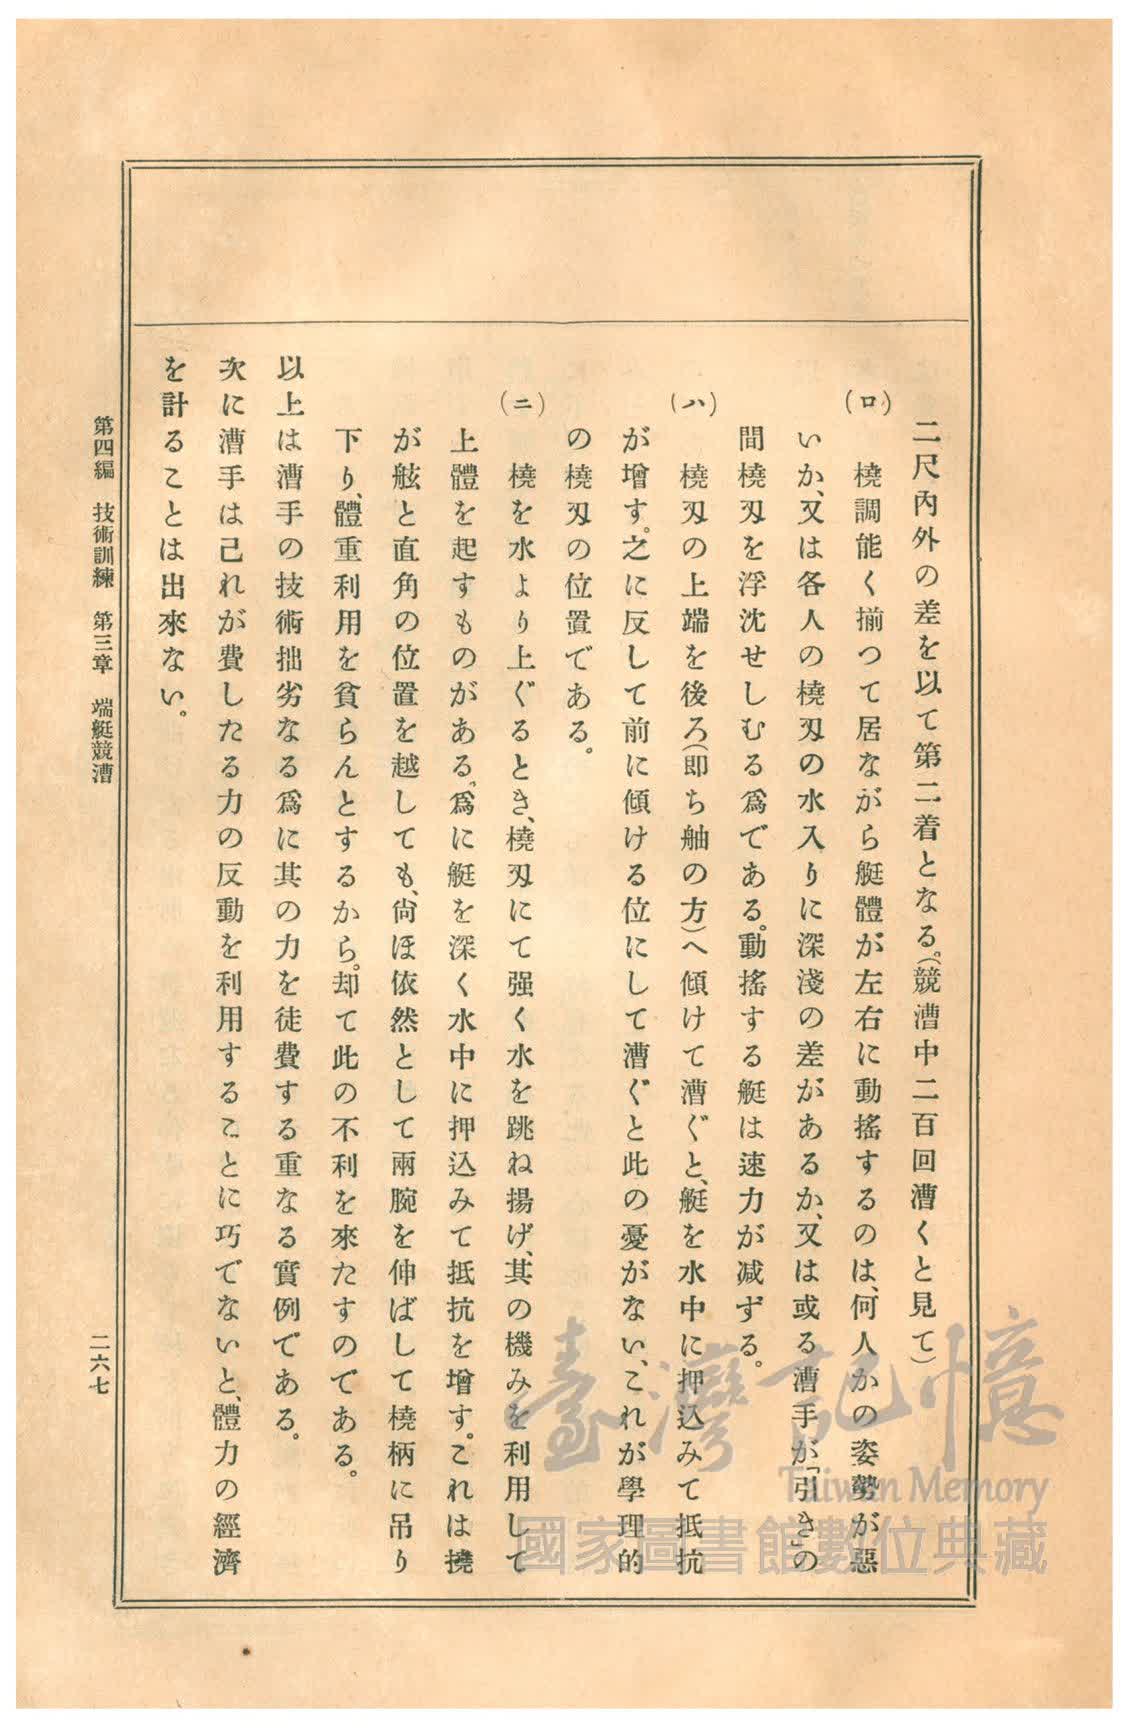 二尺內外の差を以て第二着となる。(競漕中二百回漕くと見て)
(ロ) 橈調能く揃つて居ながら艇體が左右に動搖するのは、何人かの姿勢が惡
いか、又は各人の橈刄の水入りに深淺の差があるか、又は或る漕手が「引き」の
間橈刄を浮沈せしむる爲である。動搖する艇は速力が減ずる。
(ハ) 橈刄の上端を後ろ(即ち舳の方)へ傾けて漕ぐと、艇を水中に押込みて抵抗
が增す。之に反して前に傾ける位にして漕ぐと此の憂がない、これが學理的
の橈刄の位置である。
(ニ) 橈を水より上ぐるとき、橈刄にて强く水を跳ね揚げ、其の機みを利用して
上體を起すものがある、爲に艇を深く水中に押込みて抵抗を增す。これは撓
が舷と直角の位置を越しても、尙ほ依然として兩腕を伸ばして橈柄に吊り
下り、體重利用を貧らんとするから。却て此の不利を來たすのである。
以上は漕手の技術拙劣なる爲に其の力を徒費する重なる實例である。
次に漕手は己れが費したる力の反動を利用することに巧でないと、體力の經濟
を計ることは出來ない。
第四編 技術訓練 第三章 端艇競漕
二六七
臺灣記憶
Taiwan Memory
國家圖書館數位典藏